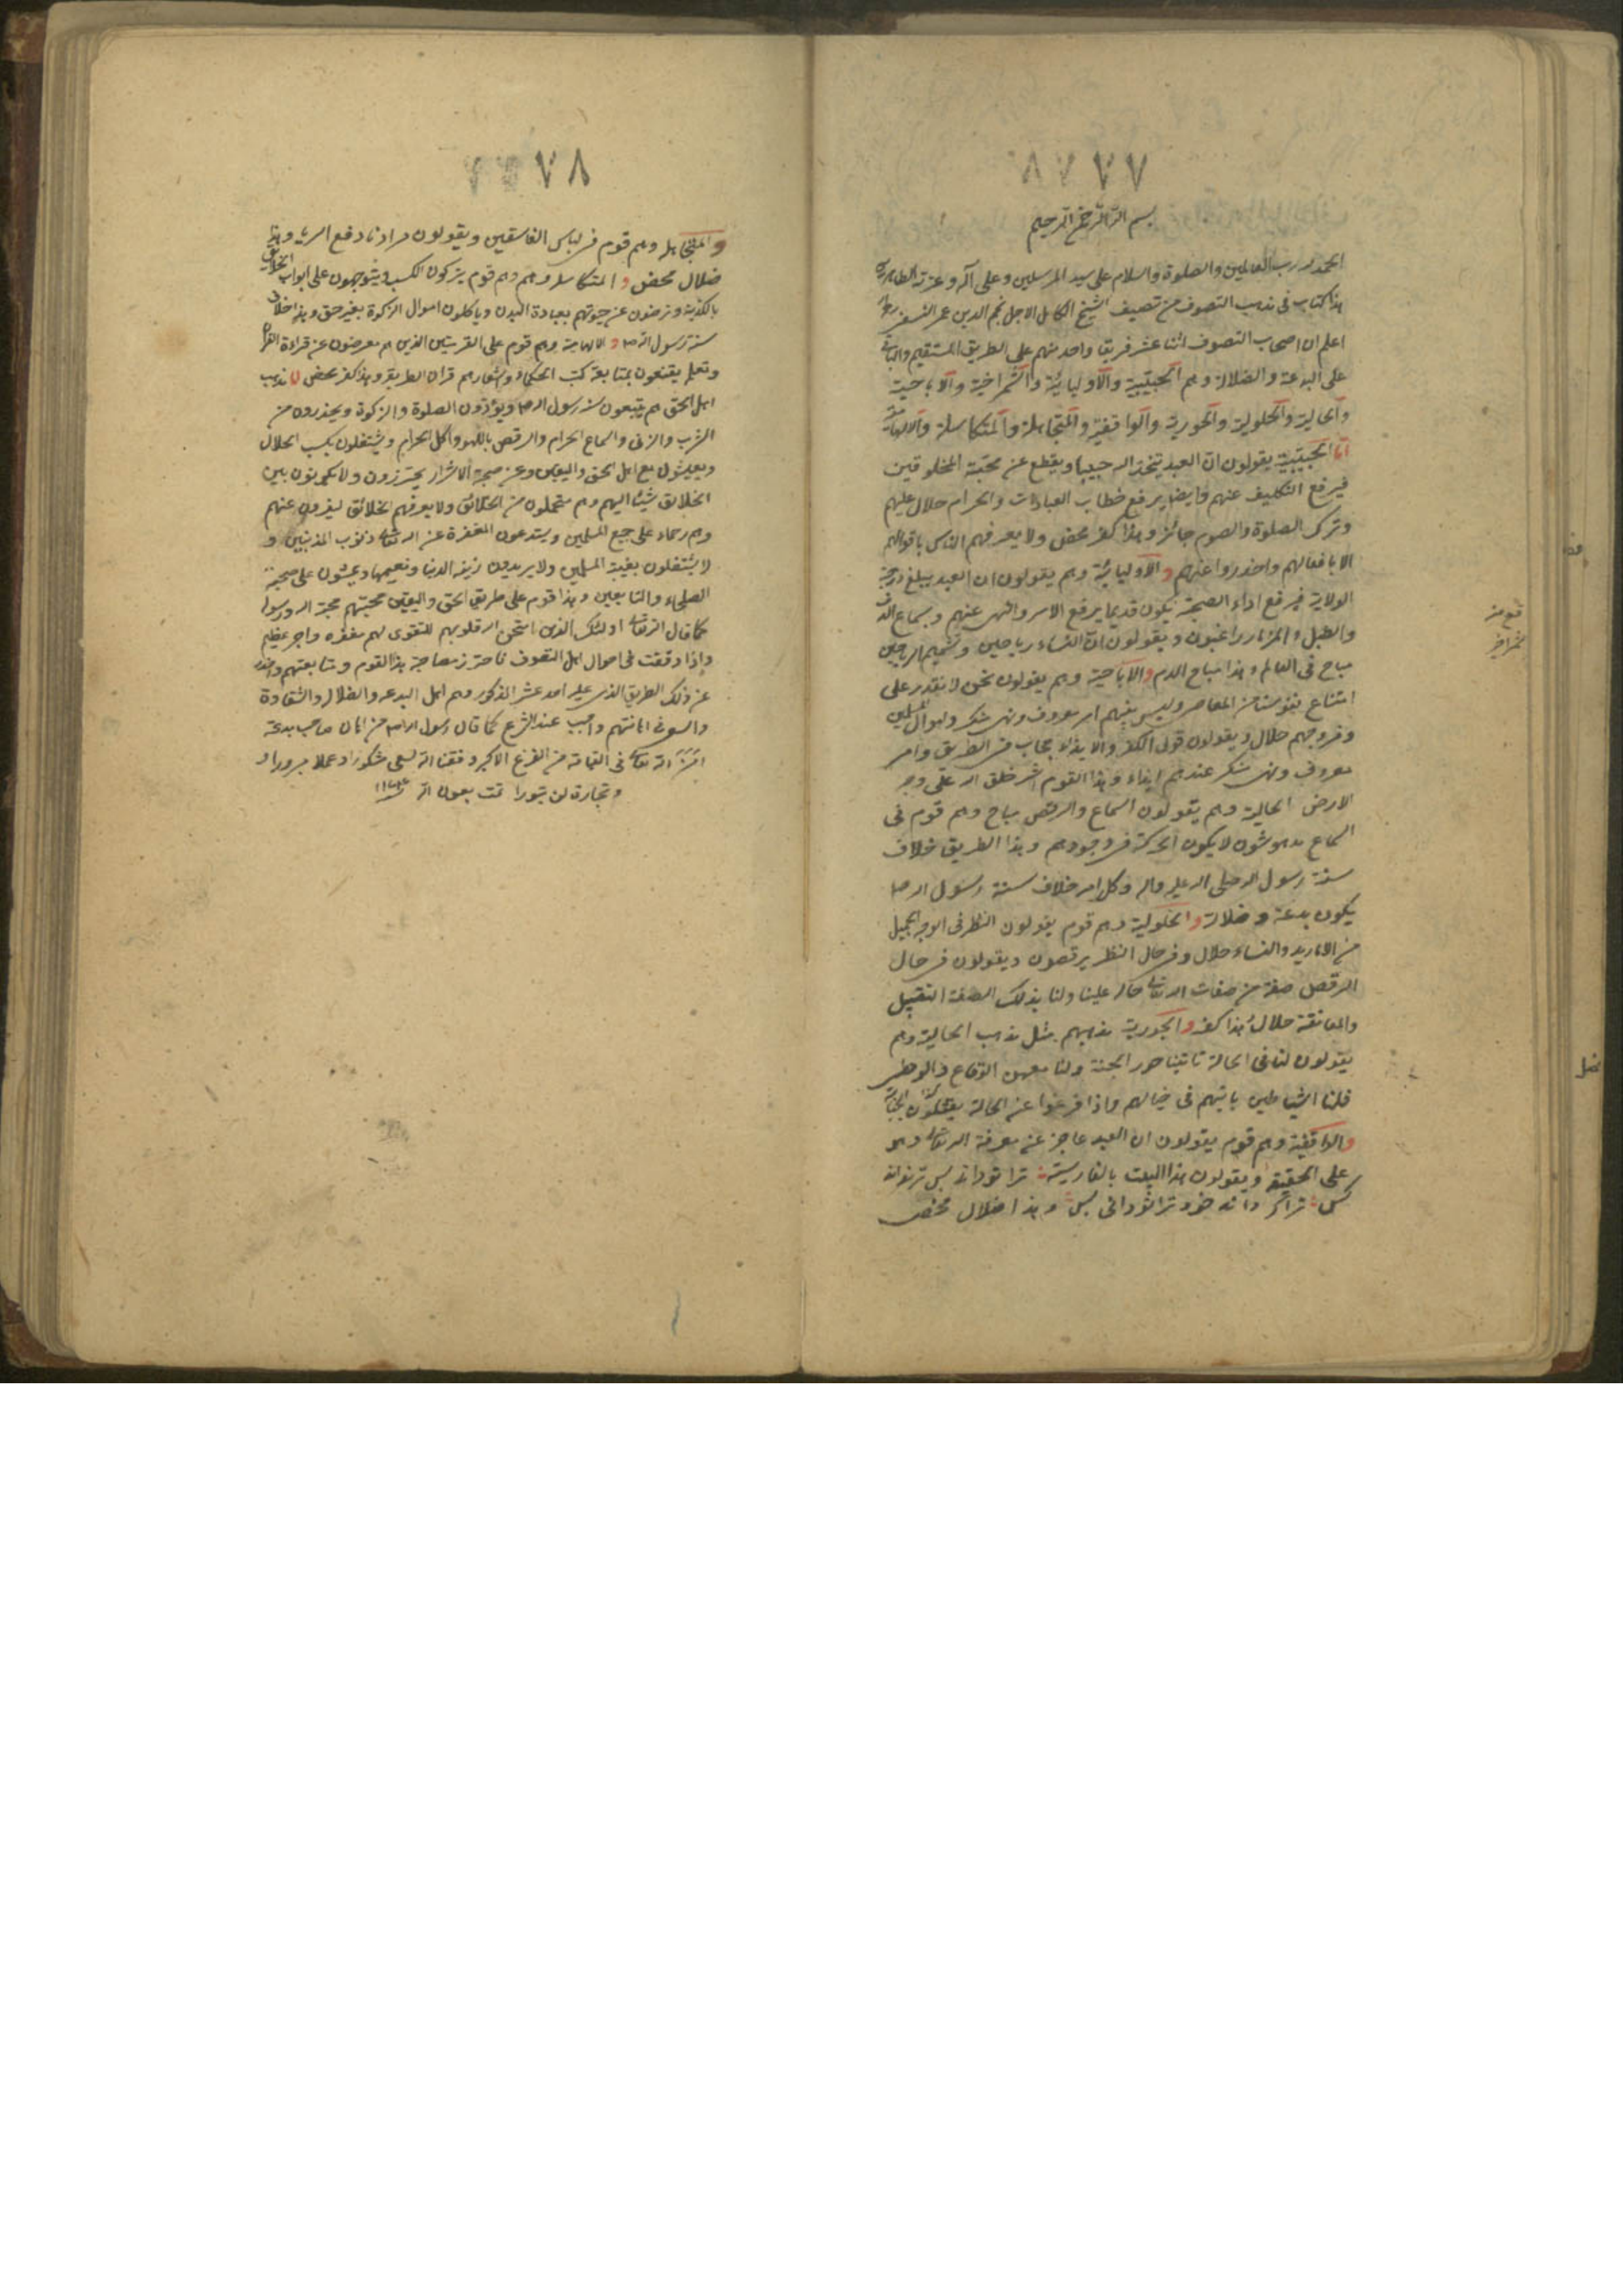 ٨٧ ٧٧
بسم الله الرحمن الرحيم
الحمد لله رب العالمين والصلوة والسلام على سيد المرسلين وعلى آله وعترته الطاهرين
هذا كتاب فى مذهب التصوف من تصنيف الشيخ الكامل الاجل نجم الدين عمر النسفى
اعلم ان اصحاب التصوف اثنا عشر فريقا واحد منهم على الطريق المستقيم والباقى
على البدعة والضلالة وهم الحبيبية والاوليائية والشمراخية والاباحية
والحالية والحلولية والحورية والواقفية والمتجاهلة والمتكاسلة والالهامية
اما الحبيبية يقولون ان العبد يتخذ الله حبيبا ويقطع عن محبة المخلوقين
فيرفع التكليف عنهم وايضا يرفع خطاب العبادات والحرام حلال عليهم
وترك الصلوة والصوم جائز وهذا كفر محض ولا يعرفهم الناس باقوالهم
الا بافعالهم واحذروا عنهم والاوليائية وهم يقولون ان العبد يبلغ درجة
الولاية فيرفع اداء الصحبة يكون قديما يرفع الامر والنهى عنهم وبسماع الدف
والطبل والمزمار راغبون ويقولون ان النساء رياحين وتشميم الرياحين
مباح فى العالم وهذا مباح الدم والاباحية وهم يقولون نحن لا نقدر على
امتناع نفوسنا من المعاصى وليس بينهم امر معروف ونهى منكر واموال المسلمين
وفروجهم حلال ويقولون قولى الكفر والايذاء حجاب فى الطريق وامر
معروف ونهى منكر عندهم ايذاء وهذا القوم اشر خلق الله على وجه
الارض الحالية وهم يقولون السماع والرقص مباح وهم قوم فى
السماع مدهوشون لا يكون الحركة فى وجودهم وهذا الطريق خلاف
سنة رسول الله صلى الله عليه واله وكل امر خلاف سنة رسول الله ص
يكون بدعة وضلالة والحلولية وهم قوم يقولون النظر فى الوجه الجميل
من الاماريد والنساء حلال وفى حال النظر يرقصون ويقولون فى حال
الرقص صفة من صفات الله تعالى حال علينا ولنا بذلك الصفة التقبيل
والمعانقة حلال هذا كفر والحورية مذهبهم مثل مذهب الحالية وهم
يقولون لنا فى الحالة تاتينا حور الجنة ولنا معهن الوقاع والوطى
قلنا الشياطين ياتيهم فى خيالهم واذا فرغوا عن الحالة يغتسلون
والواقفية وهم قوم يقولون ان العبد عاجز عن معرفة الله تعالى وهو
على الحقيقة ويقولون هذا البيت بالفارسية ترا تو دانى بس ترا نداند
كس ترا كه داند خود ترا تو دانى بس وهذا ضلال محض
قع من
شمراخيه
٧٨
والمتجاهلة وهم قوم فى لباس الفاسقين ويقولون مرادنا دفع الرياء وهذا
ضلال محض والمتكاسلة وهم قوم يتركون الكسب ويتوجهون على ابواب الخلايق
بالكدية ويرضون عن حيوتهم بعبادة البدن وياكلون اموال الزكوة بغير حق وهذا خلاف
سنة رسول الله ص والالهامية وهم قوم على القريتين الذين هم معرضون عن قراءة القرآن
وتعلم يقنعون بمتابعة كتب الحكماء واشعارهم قران الطريقة وهذا كفر محض اما مذهب
اهل الحق هم يتبعون سنة رسول الله ص ويؤدون الصلوة والزكوة ويحذرون من
الشرب والزنى والسماع الحرام والرقص باللهو واكل الحرام ويشتغلون بكسب الحلال
ويعيشون مع اهل الحق واليقين وعن صحبة الاشرار يحترزون ولا يكونون بين
الخلائق شيئا اليهم وهم متحملون من الخلائق ولا يعرفهم الخلائق ليفرون عنهم
وهم رحماء على جميع المسلمين ويستدعون المغفرة عن الله تعالى ذنوب المذنبين و
لا يشتغلون بغيبة المسلمين ولا يريدون زينة الدنيا ونعيمها ويمشون على صحبة
الصلحاء والتابعين وهذا قوم على طريق الحق واليقين محبتهم محبة الله ورسوله
كما قال الله تعالى اولئك الذين امتحن الله قلوبهم للتقوى لهم مغفرة واجر عظيم
واذا وقفت فى احوال اهل التصوف فاحترز مصاحبة هذا القوم ومتابعتهم
عن ذلك الطريق الذى عليه احد عشر المذكور وهم اهل البدعة والضلال والشقاوة
والسعى فى اهانتهم واجب عند الشرع كما قال رسول الله ص من اهان صاحب بدعة
امنه الله تعالى فى القيامة من الفزع الاكبر وفقنا الله لسعى مشكورا وعملا مبرورا و
وتجارة لن تبورا تمت بعون الله